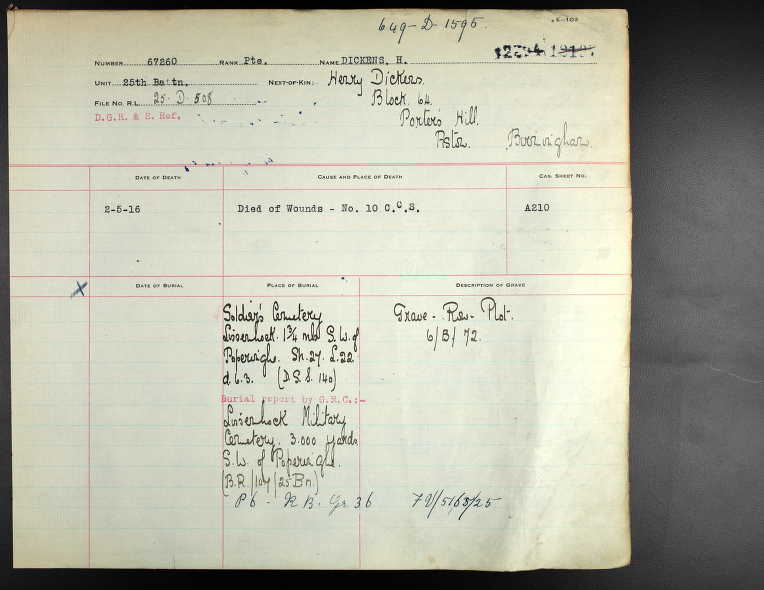 649-D-1595.
NUMBER 67260 RANK Pte. NAME DICKENS, H.
UNIT 25th Battn. NEXT-OF-KIN: Henry Dickens.
Block 64.
FILE NO. R.L. 25-D-508
Porters Hill.
D.G.R. & E. Ref.
Aston. Birmingham.
DATE OF DEATH CAUSE AND PLACE OF DEATH CAS. SHEET NO.
2-5-16 Died of Wounds - No. 10 C.C.S. A210
DATE OF BURIAL PLACE OF BURIAL DESCRIPTION OF GRAVE
X
Soldier's Cemetery Grave - Row - Plot.
Lissenhock. 1¾ mls S.W. of 6/B/72.
Poperinghe. Sh. 27. L.22
d 6.3. (D.S.S. 140)
Burial report by G.R.C.:-
Lissenhock Military
Cemetery. 3.000 yards
S.W. of Poperinghe.
(B.R./104/25 Bn)
P6 - R B. Gr 36